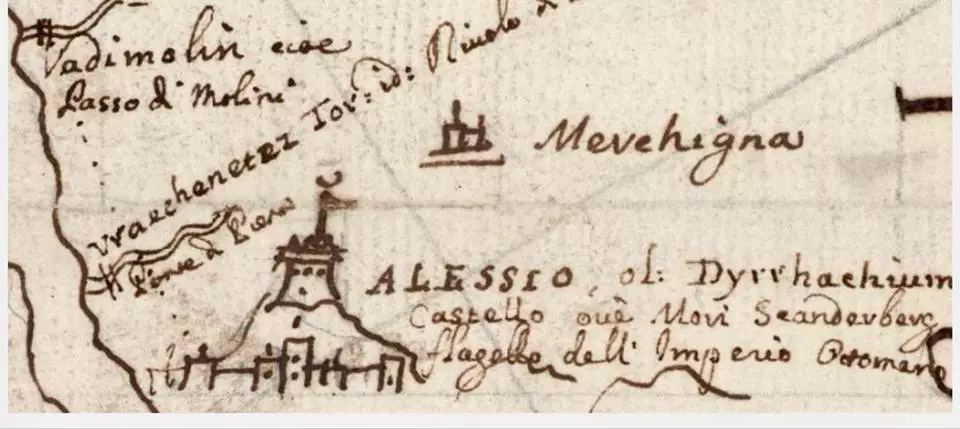 Vadimolin cioe
Passo di Molini
Vraecheneter Tor: id: Riuolo
Ponte d Piera
Mevehigna
ALESSIO, ol: Dyrrhachium
Castello oué Mori Scanderberg
flagello dell' Imperio Ottomano